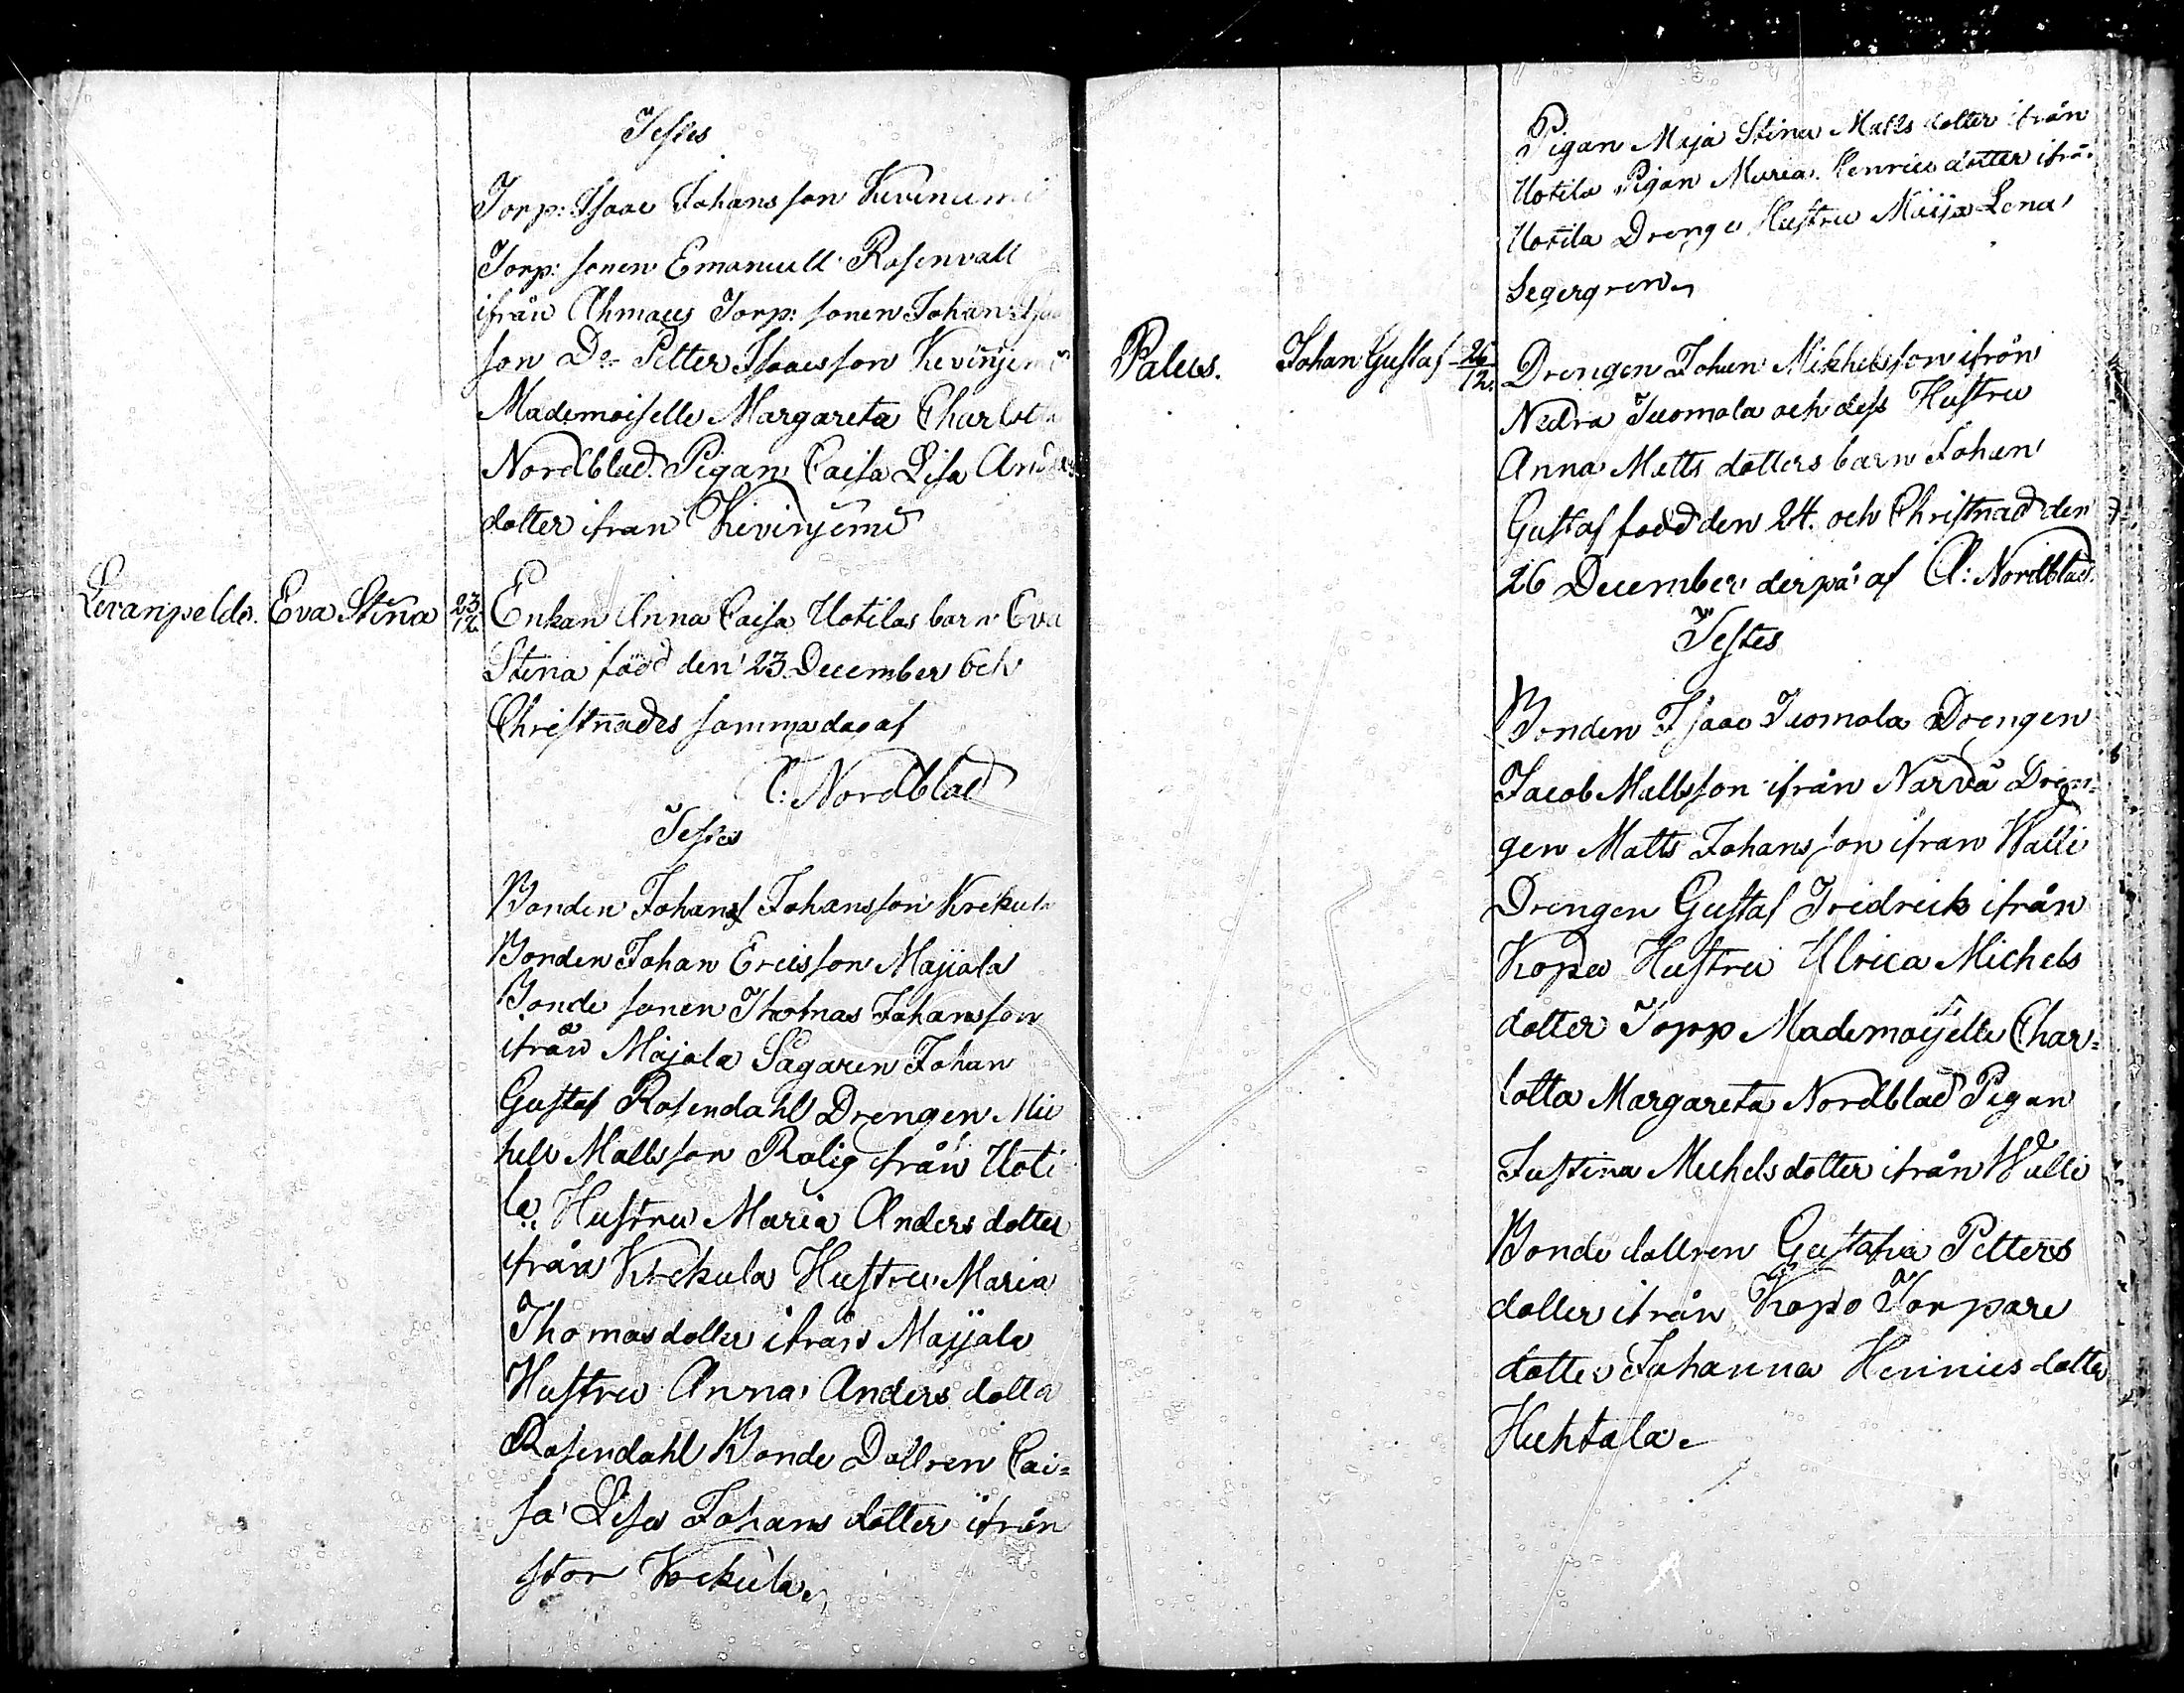 Testes
Torp: Isaac Johansson Kiviniemi
Torp: sonen Emanuell Rosenvall
ifrån Ahmaus Torp: sonen Johan Isaa
son Do Petter Isaacsson Kevinjemi
Mademoiselle Margareta Charlotta
Nordblad Pigan Caisa Lisa Anders
dotter ifrån Kivinjemi
Levanpeldo. Eva Stina 23/12. Enkan Anna Caisa Uotilas barn Eva
Stina född den 23 December och
Christnades samma dag af
C: Nordblad
Testes
Bonden Johans Johansson Krekula
Bonden Johan Ericsson Majjala
Bonde sonen Thomas Johansson
ifrån Majala Sågaren Johan
Gustaf Rosendahl Drengen Mic
hell Mattsson Rolig ifrån Uoti
la. Hustru Maria Anders dotter
ifrån Krekula Hustru Maria
Thomasdotter ifrån Majjala
Hustru Anna Anders dotter
Rosendahl Bonde Dottren Cai=
sa Lisa Johans dotter ifrån
stor Krekula.
Pigan Maja Stina Matts dotter ifrån
Uotila Pigan Maria Henrics dotter ifrå.
Uotila Drenge Hustru Maija Lena
Segergren
Palus. Johan Gustaf 26/12. Drengen Johan Mikhelsson ifrån
Nedra Tuomola och dess Hustru
Anna Matts dotters barn Johan
Gustaf född den 24. och Christnad den
26 December derpå af C: Nordblad.
Testes
Bonden Isaac Tuomola Drengen
Jacob Mattsson ifrån Narvå Dren=
gen Matts Johansson ifrån Walli
Drengen Gustaf Fredrick ifrån
Kopo Hustru Ulrica Michels
dotter Topp Mademoiselle Char=
lotta Margareta Nordblad Pigan
Justina Michelsdotter ifrån Walli
Bonde dottren Gustafva Petters
dotter ifrån Kopo Torpare
dotter Johanna Henrics dotter
Huhtala.